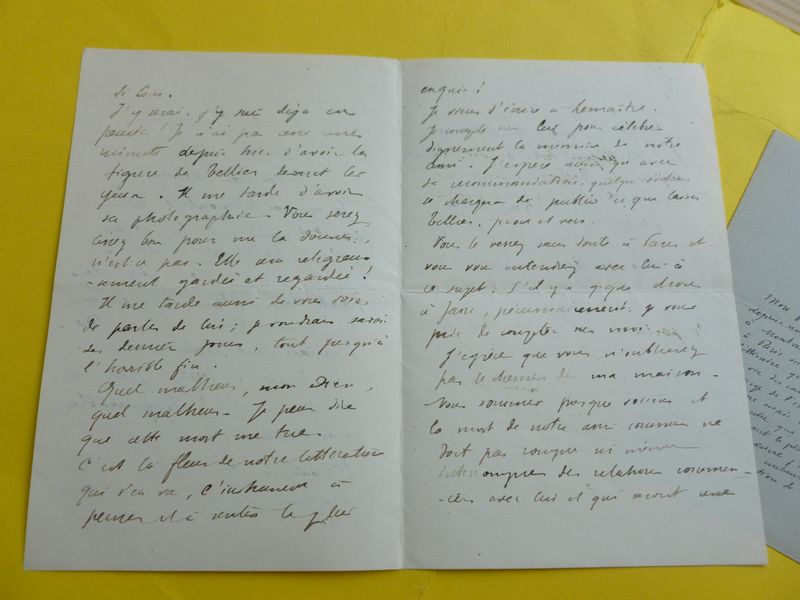 si bon.
J'y vrai, j'y suis déjà en
pensée ! Je n'ai pas cessé une
minute depuis hier d'avoir la
figure de Tellier devant les
yeux. Il me tarde d'avoir
sa photographie. Vous serez
assez bon pour me la donner,
n'est-ce pas. Elle sera religieuse
-ument gardée et regardée !
Il me tarde aussi de vous voir
de parler de lui ; je voudrais savoir
ses derniers jours, tout jusqu'à
l'horrible fin.
Quel malheur, mon Dieu,
quel malheur. Je peux dire
que cette mort me tue.
C'est la fleur de notre littérature
qui s'en va, l'
penser et à sentir le plus
exquis !
Je viens d'écrire à Lemaître.
Je compte sur lui pour célébrer
dignement la mémoire de notre
ami. J'espère aussi qu'avec
sa recommandation, quelqu'
se chargera de publier ce que laisse
Tellier, prose et vers.
Vous le verrez sans doute à Paris et
vous vous entendrez avec lui à
ce sujet. S'il y a q.que chose
à faire, pécuniairement, je vous
prie de compter sur moi.
J'espère que vous n'oublierez
pas le chemin de ma maison.
Nous sommes presque voisins et
la mort de notre ami commun ne
doit pas rompre ni même
interrompre des relations commen-
-cées avec lui et qui seront une
Mon
depuis
à Paris